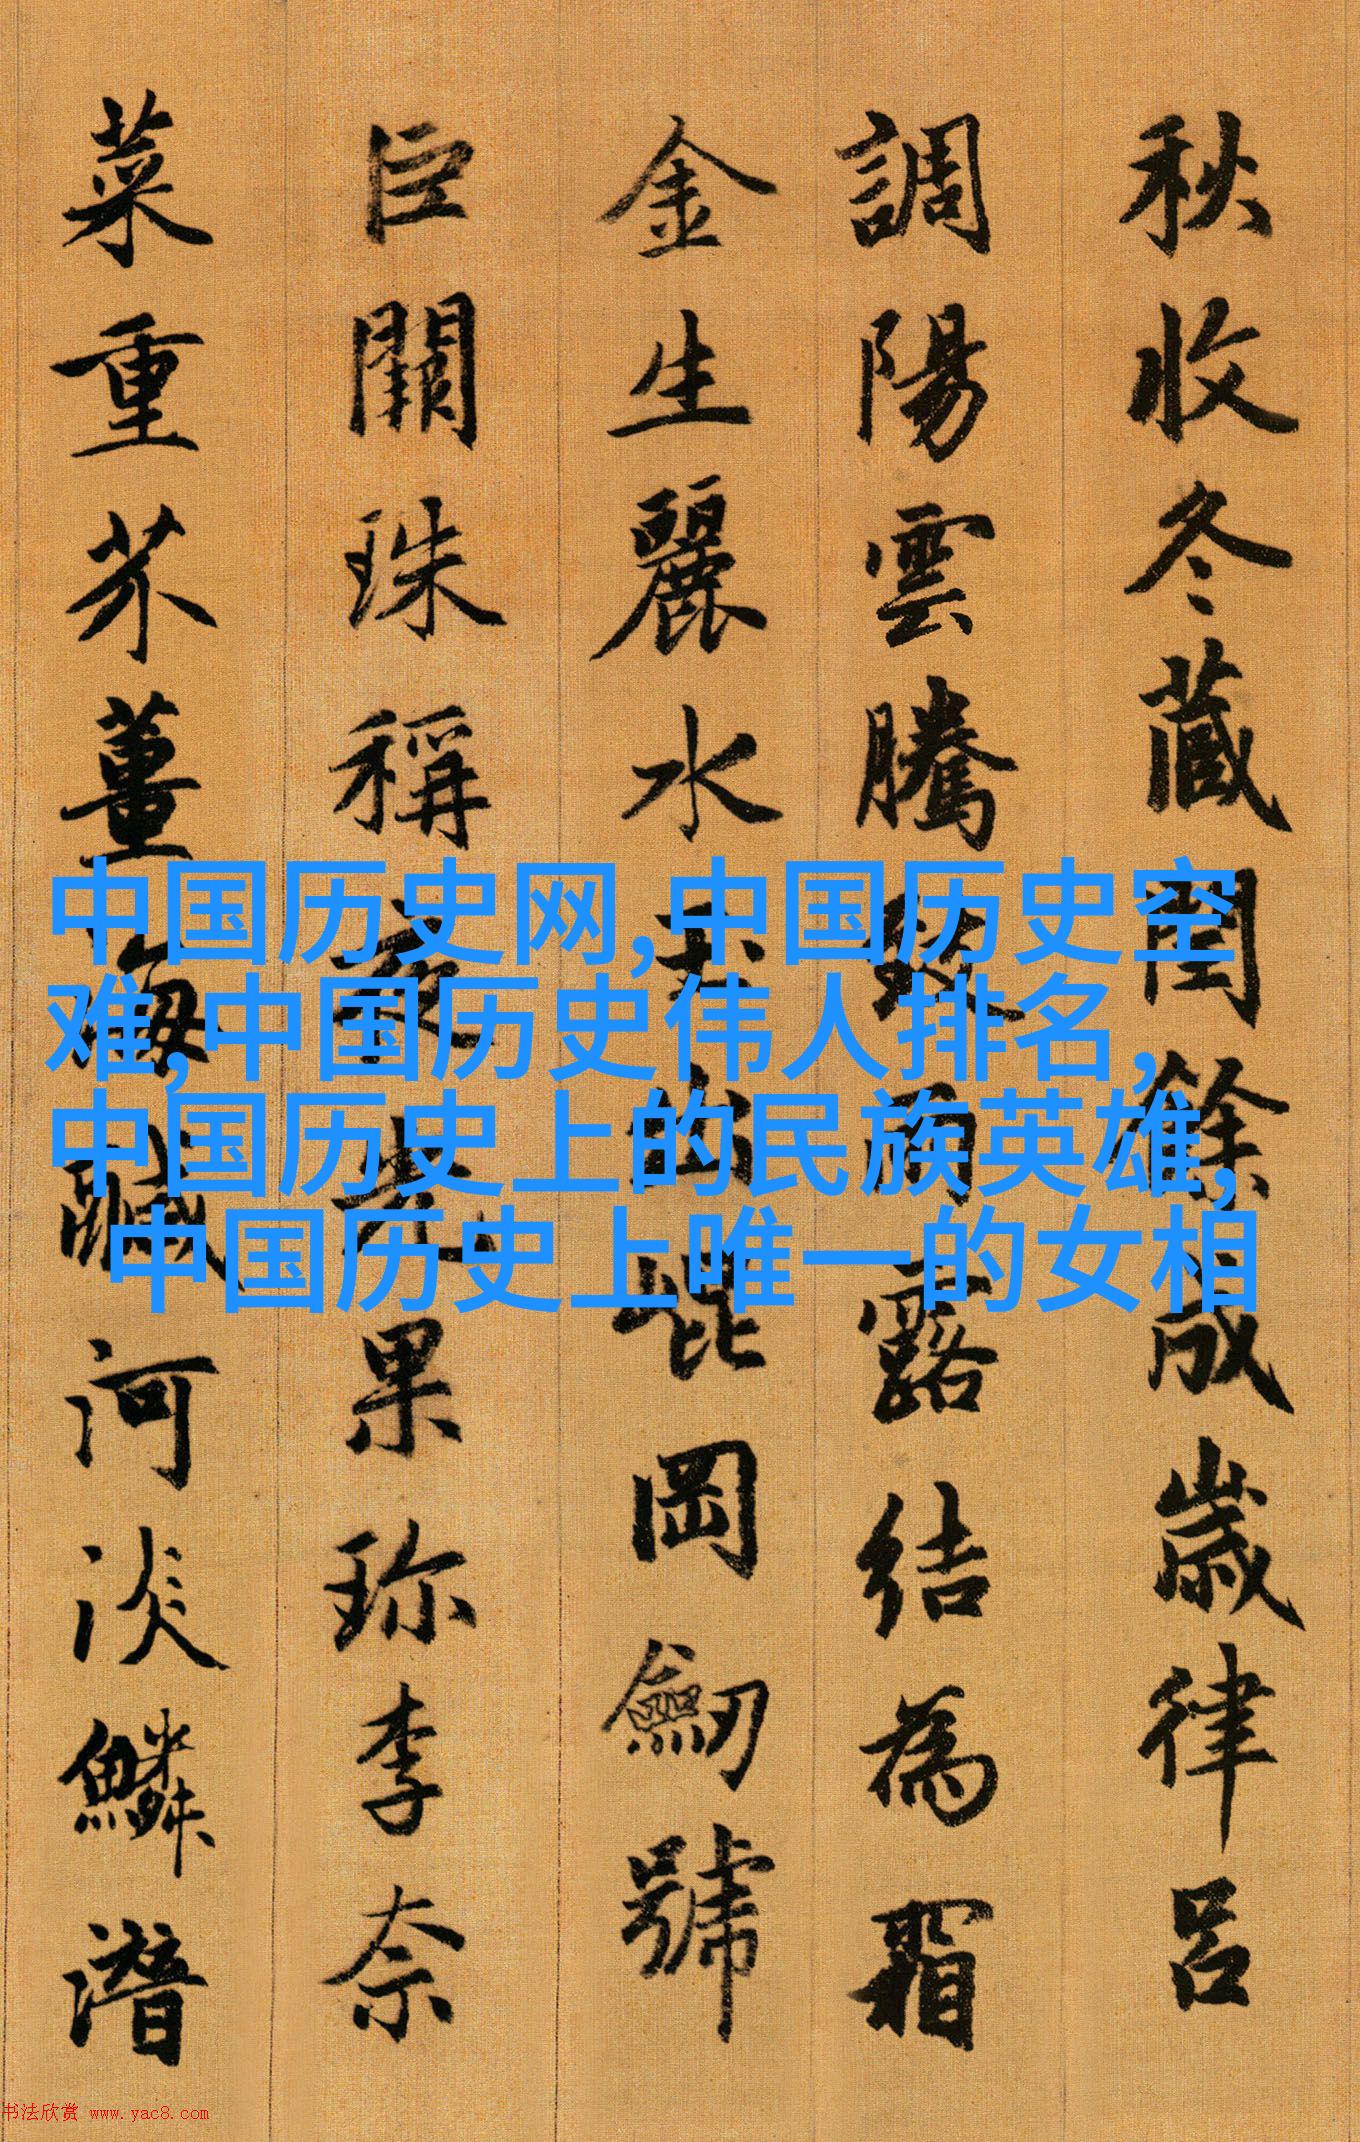 秋收冬蔵閏餘成歲律呂
調陽雲騰致雨露結為霜
金生麗水玉出崐岡劒號
巨闕珠稱夜光果珎李奈
菜重芥薑海鹹河淡鱗潛
中国历史网,中国历史空
难,中国历史伟人排名，
中国历史上的民族英雄,
中国历史上唯一的女相
书法欣赏 www.yac8.com